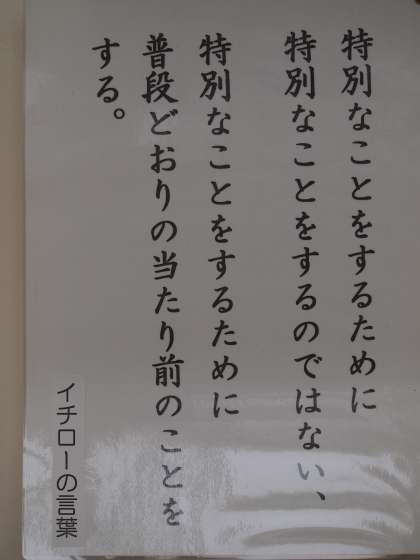 特別なことをするために
特別なことをするのではない、
特別なことをするために
普段どおりの当たり前のことを
する。
イチローの言葉